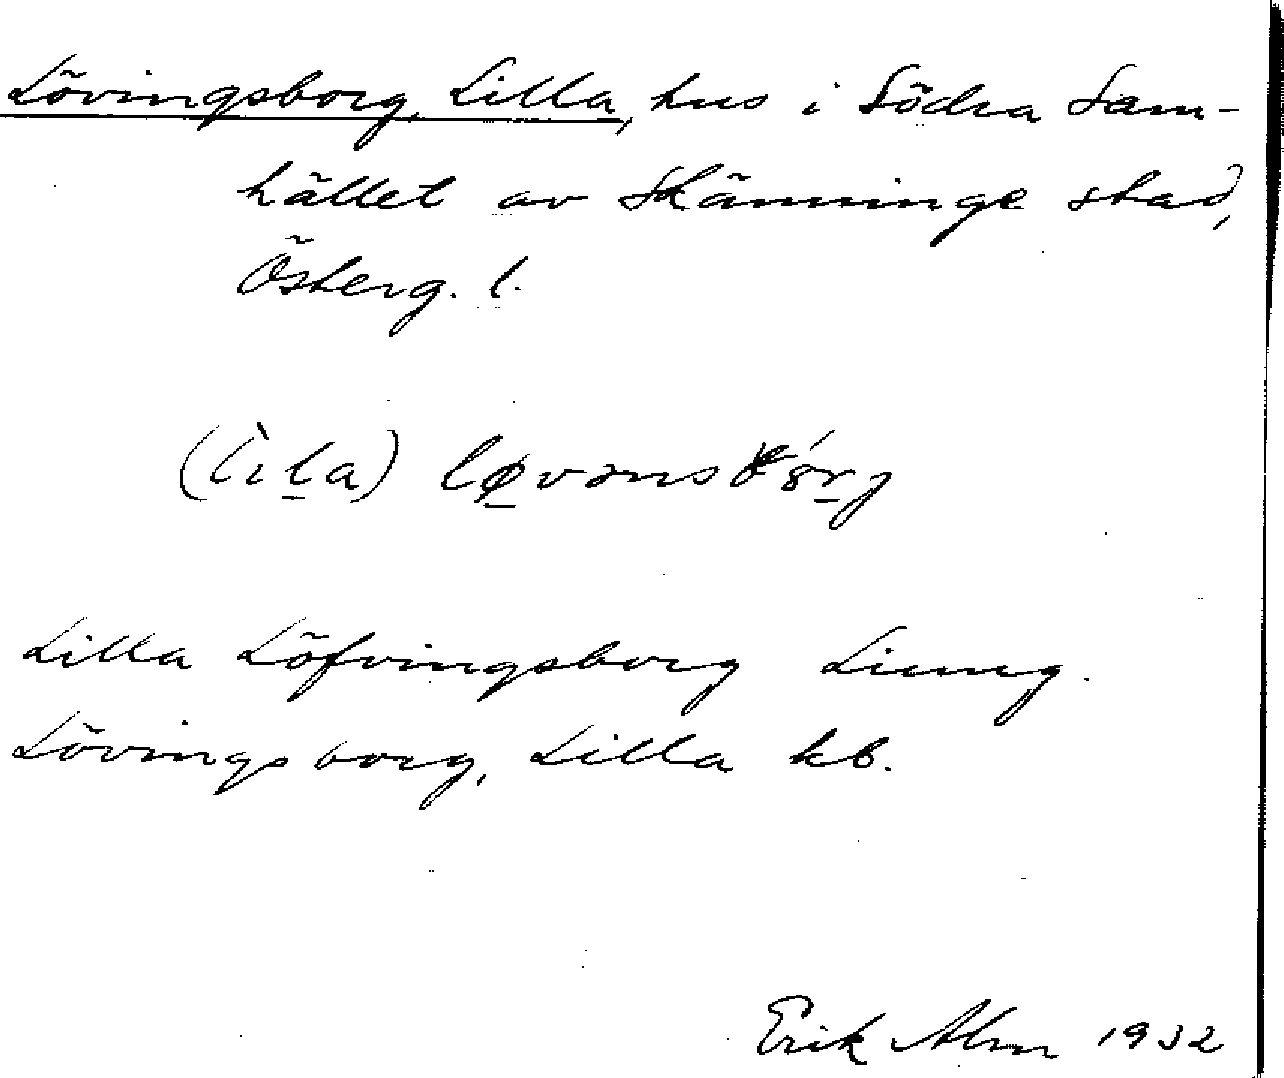 Lövingsborg, Lilla, hus i Södra Sam-
hället av Skänninge stad,
Österg. l.
Lilla Löfvingsborg Ljung.
Lövingsborg, Lilla kb.
Erik Alm 1932